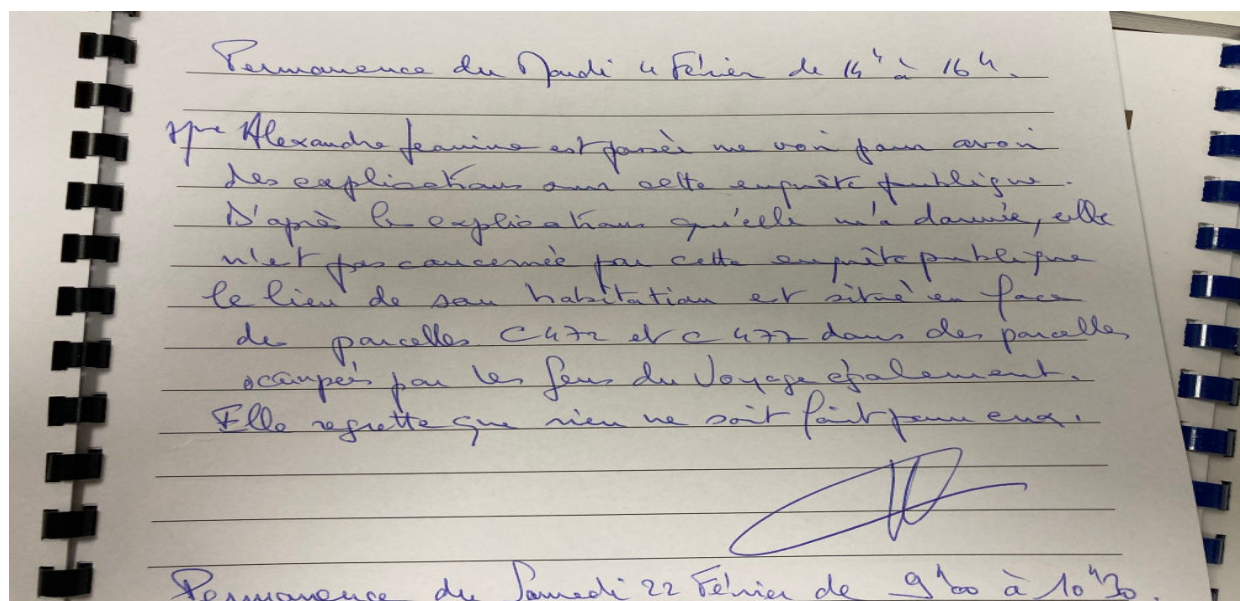 Permanence du Mardi 4 Février de 14h à 16h.
Mme Alexandre Jeanine est passée me voir pour avoir
des explications sur cette enquête publique.
D'après les explications qu'elle m'a donnée, elle
n'est pas concernée par cette enquête publique
le lieu de son habitation est situé en face
des parcelles C472 et C477 dans des parcelles
occupées par les Gens du Voyage également.
Elle regrette que rien ne soit fait pour eux.
Permanence du Samedi 22 Février de 9h00 à 10h30.